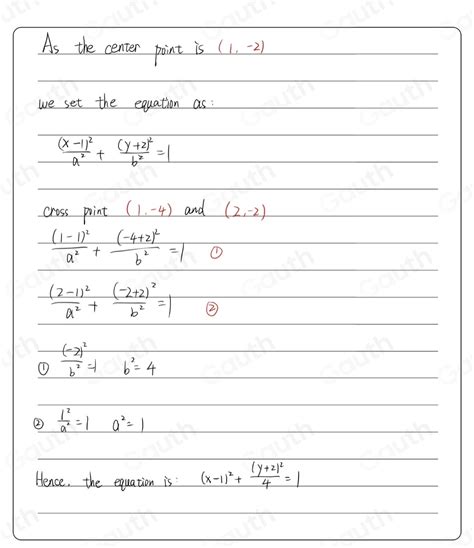 As the center point is (1, -2)
we set the equation as:
(x-1)²/a² + (y+2)²/b² = 1
cross point (1,-4) and (2,-2)
(1-1)²/a² + (-4+2)²/b² = 1 ①
(2-1)²/a² + (-2+2)²/b² = 1 ②
① (-2)²/b² = 1 b² = 4
② 1²/a² = 1 a² = 1
Hence, the equation is: (x-1)² + (y+2)²/4 = 1
Gauth